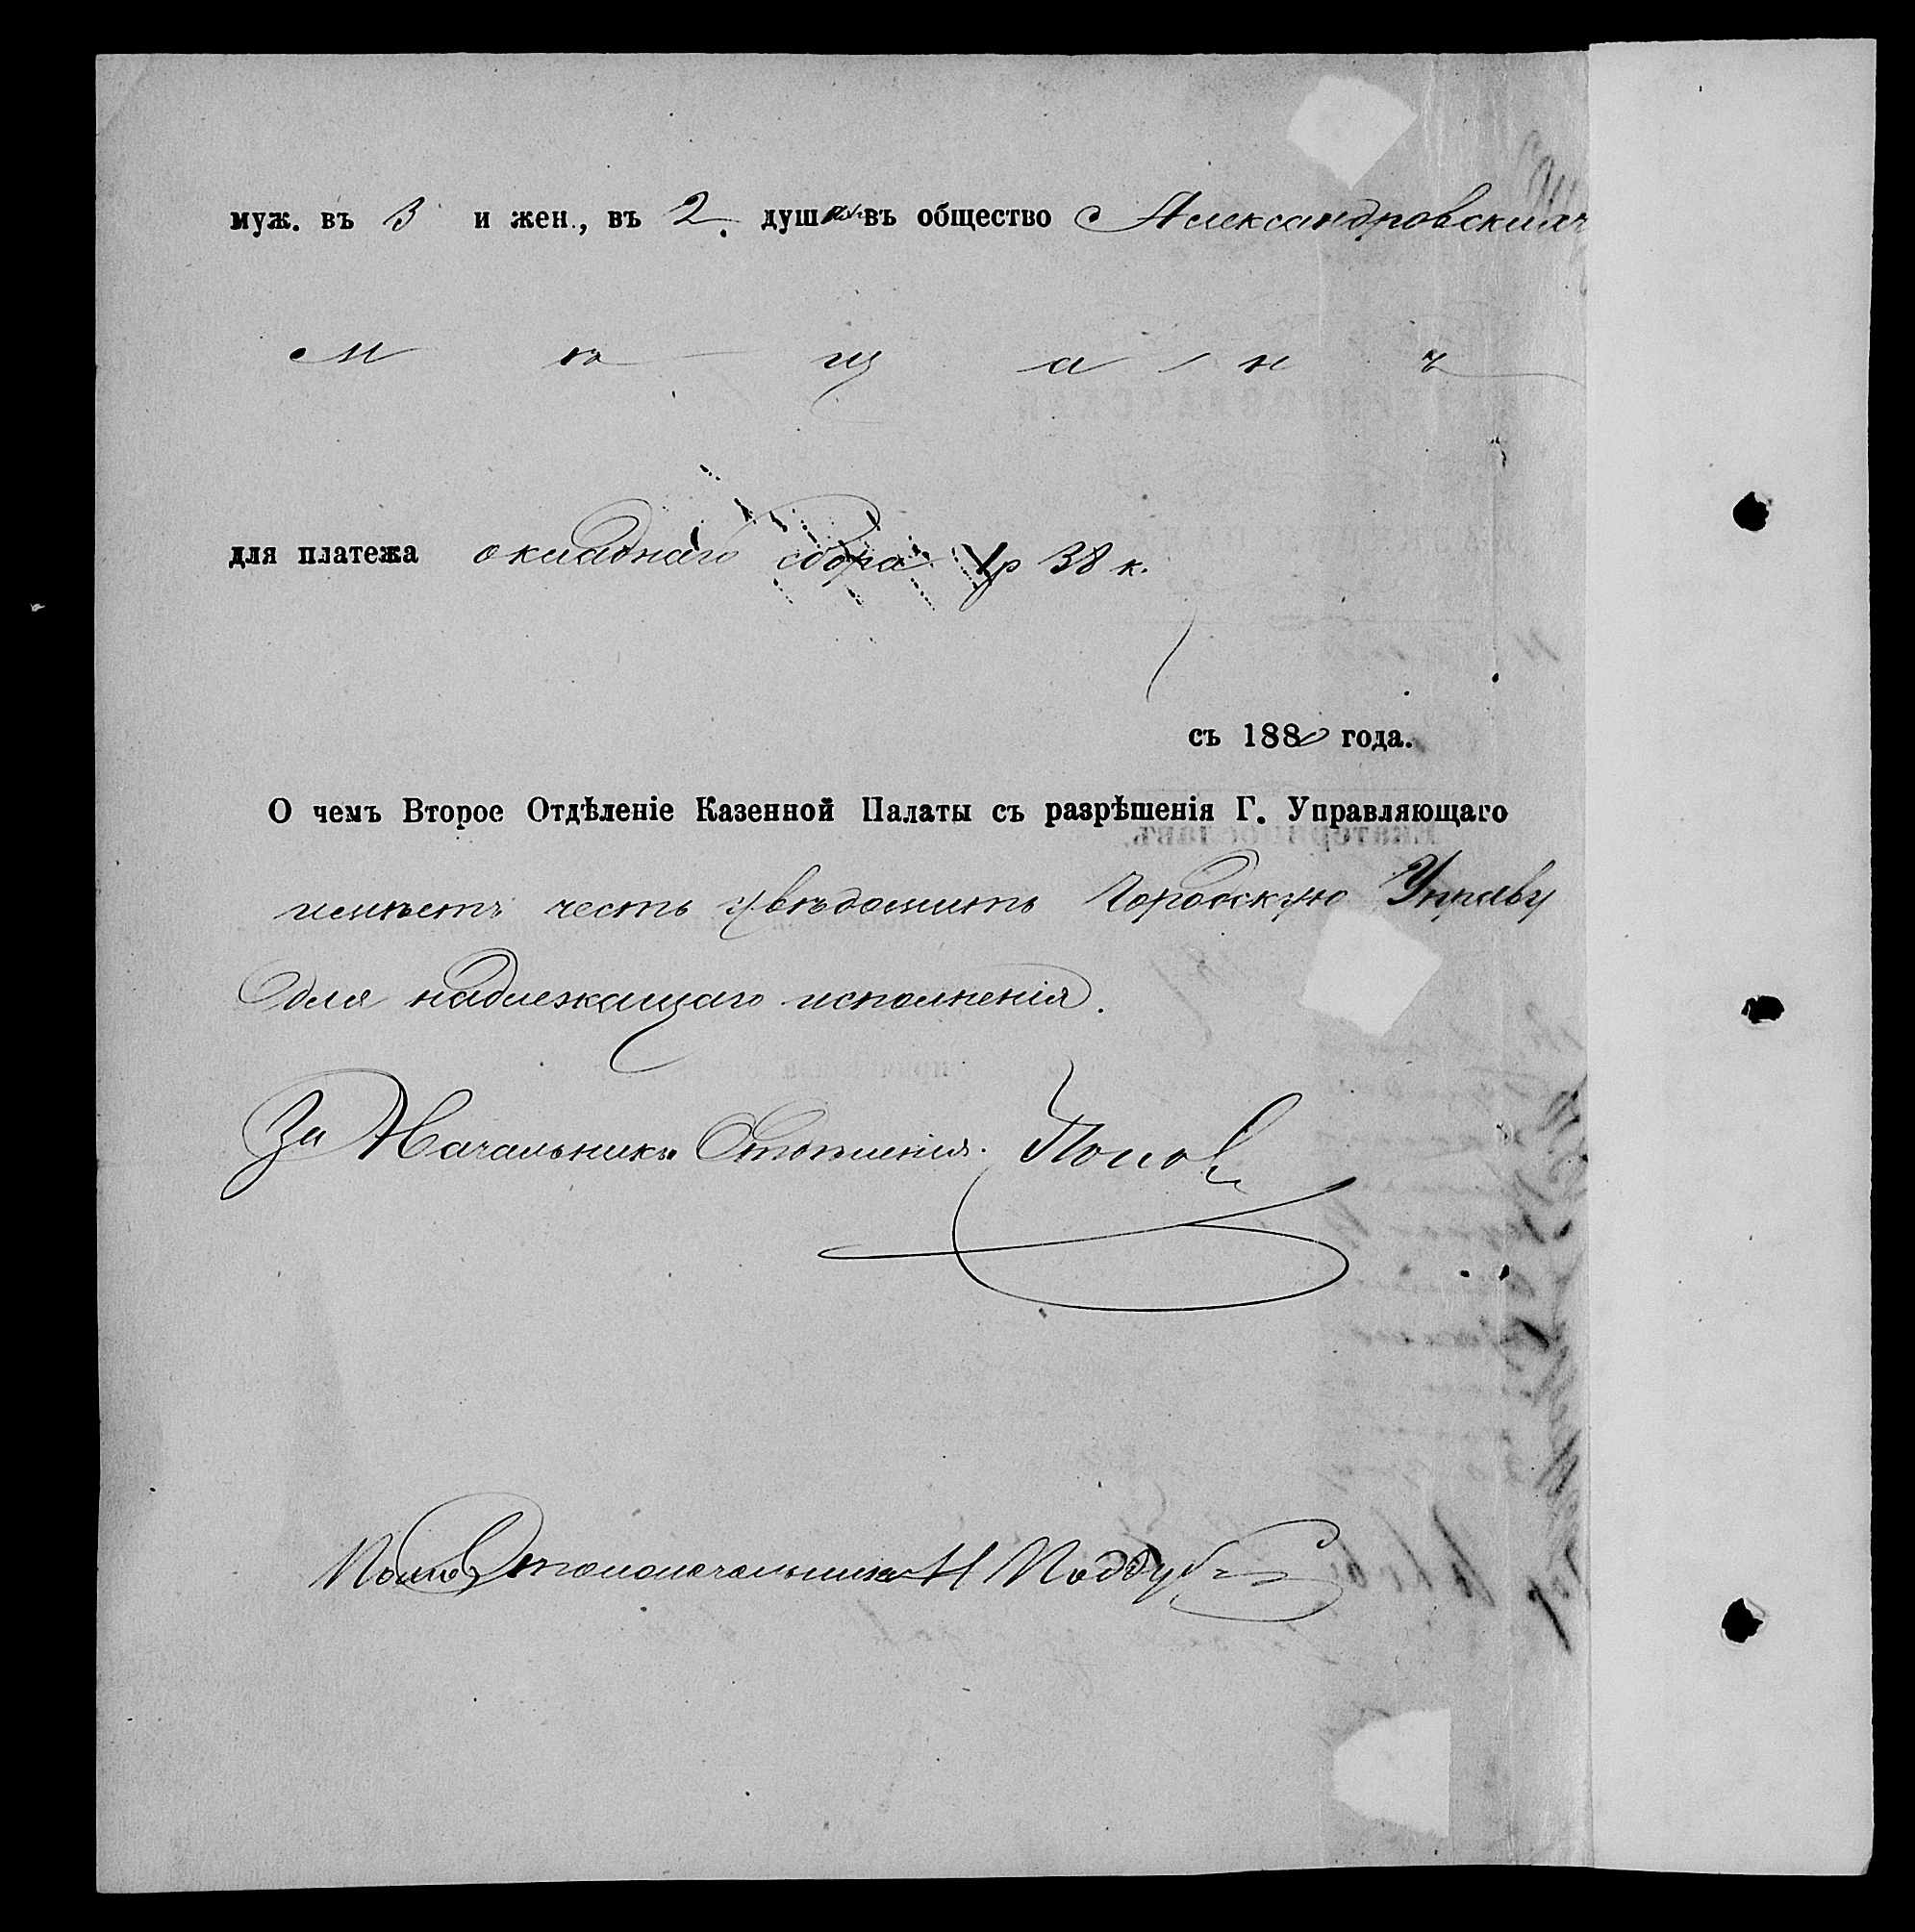 муж. въ 3 и жен., въ 2 душахъ въ общество Александровскихъ
м ѣ щ а н ъ
для платежа окладнаго сбора р 38 к.
съ 188 года.
О чемъ Второе Отдѣленіе Казенной Палаты съ разрѣшенія Г. Управляющаго
имѣетъ честь увѣдомить Городскую Управу
для надлежащаго исполненія.
За Начальника Отдѣленія. Попов
Помощ Столоначальника Н Поддуб